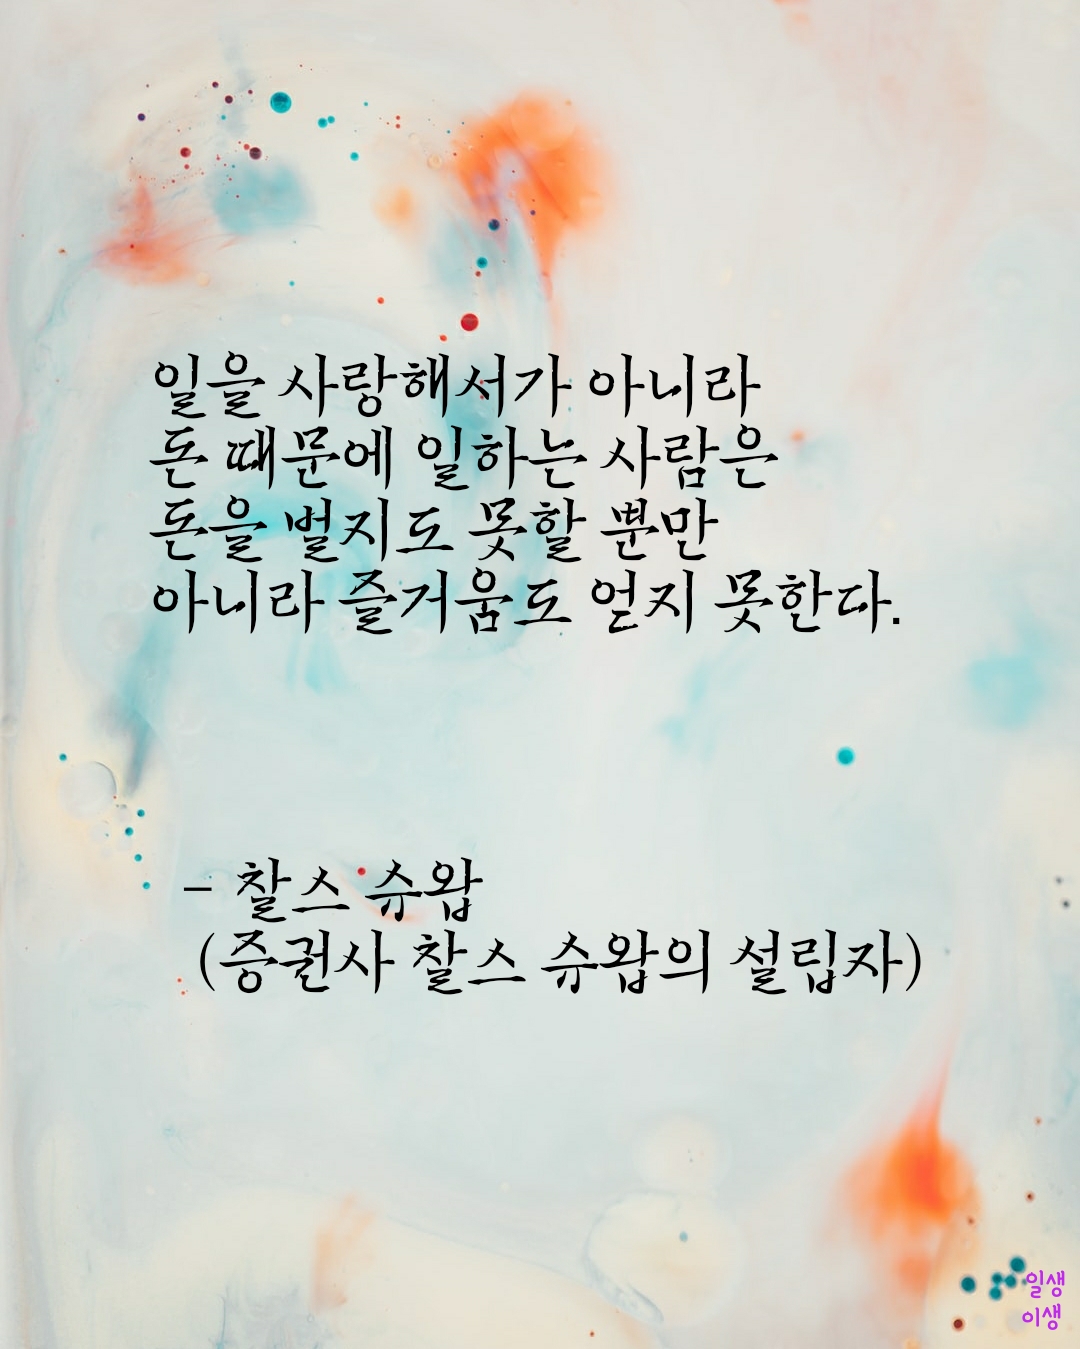 일을 사랑해서가 아니라
돈 때문에 일하는 사람은
돈을 벌지도 못할 뿐만
아니라 즐거움도 얻지 못한다.
- 찰스 슈왑
(증권사 찰스 슈왑의 설립자)
일생
이생